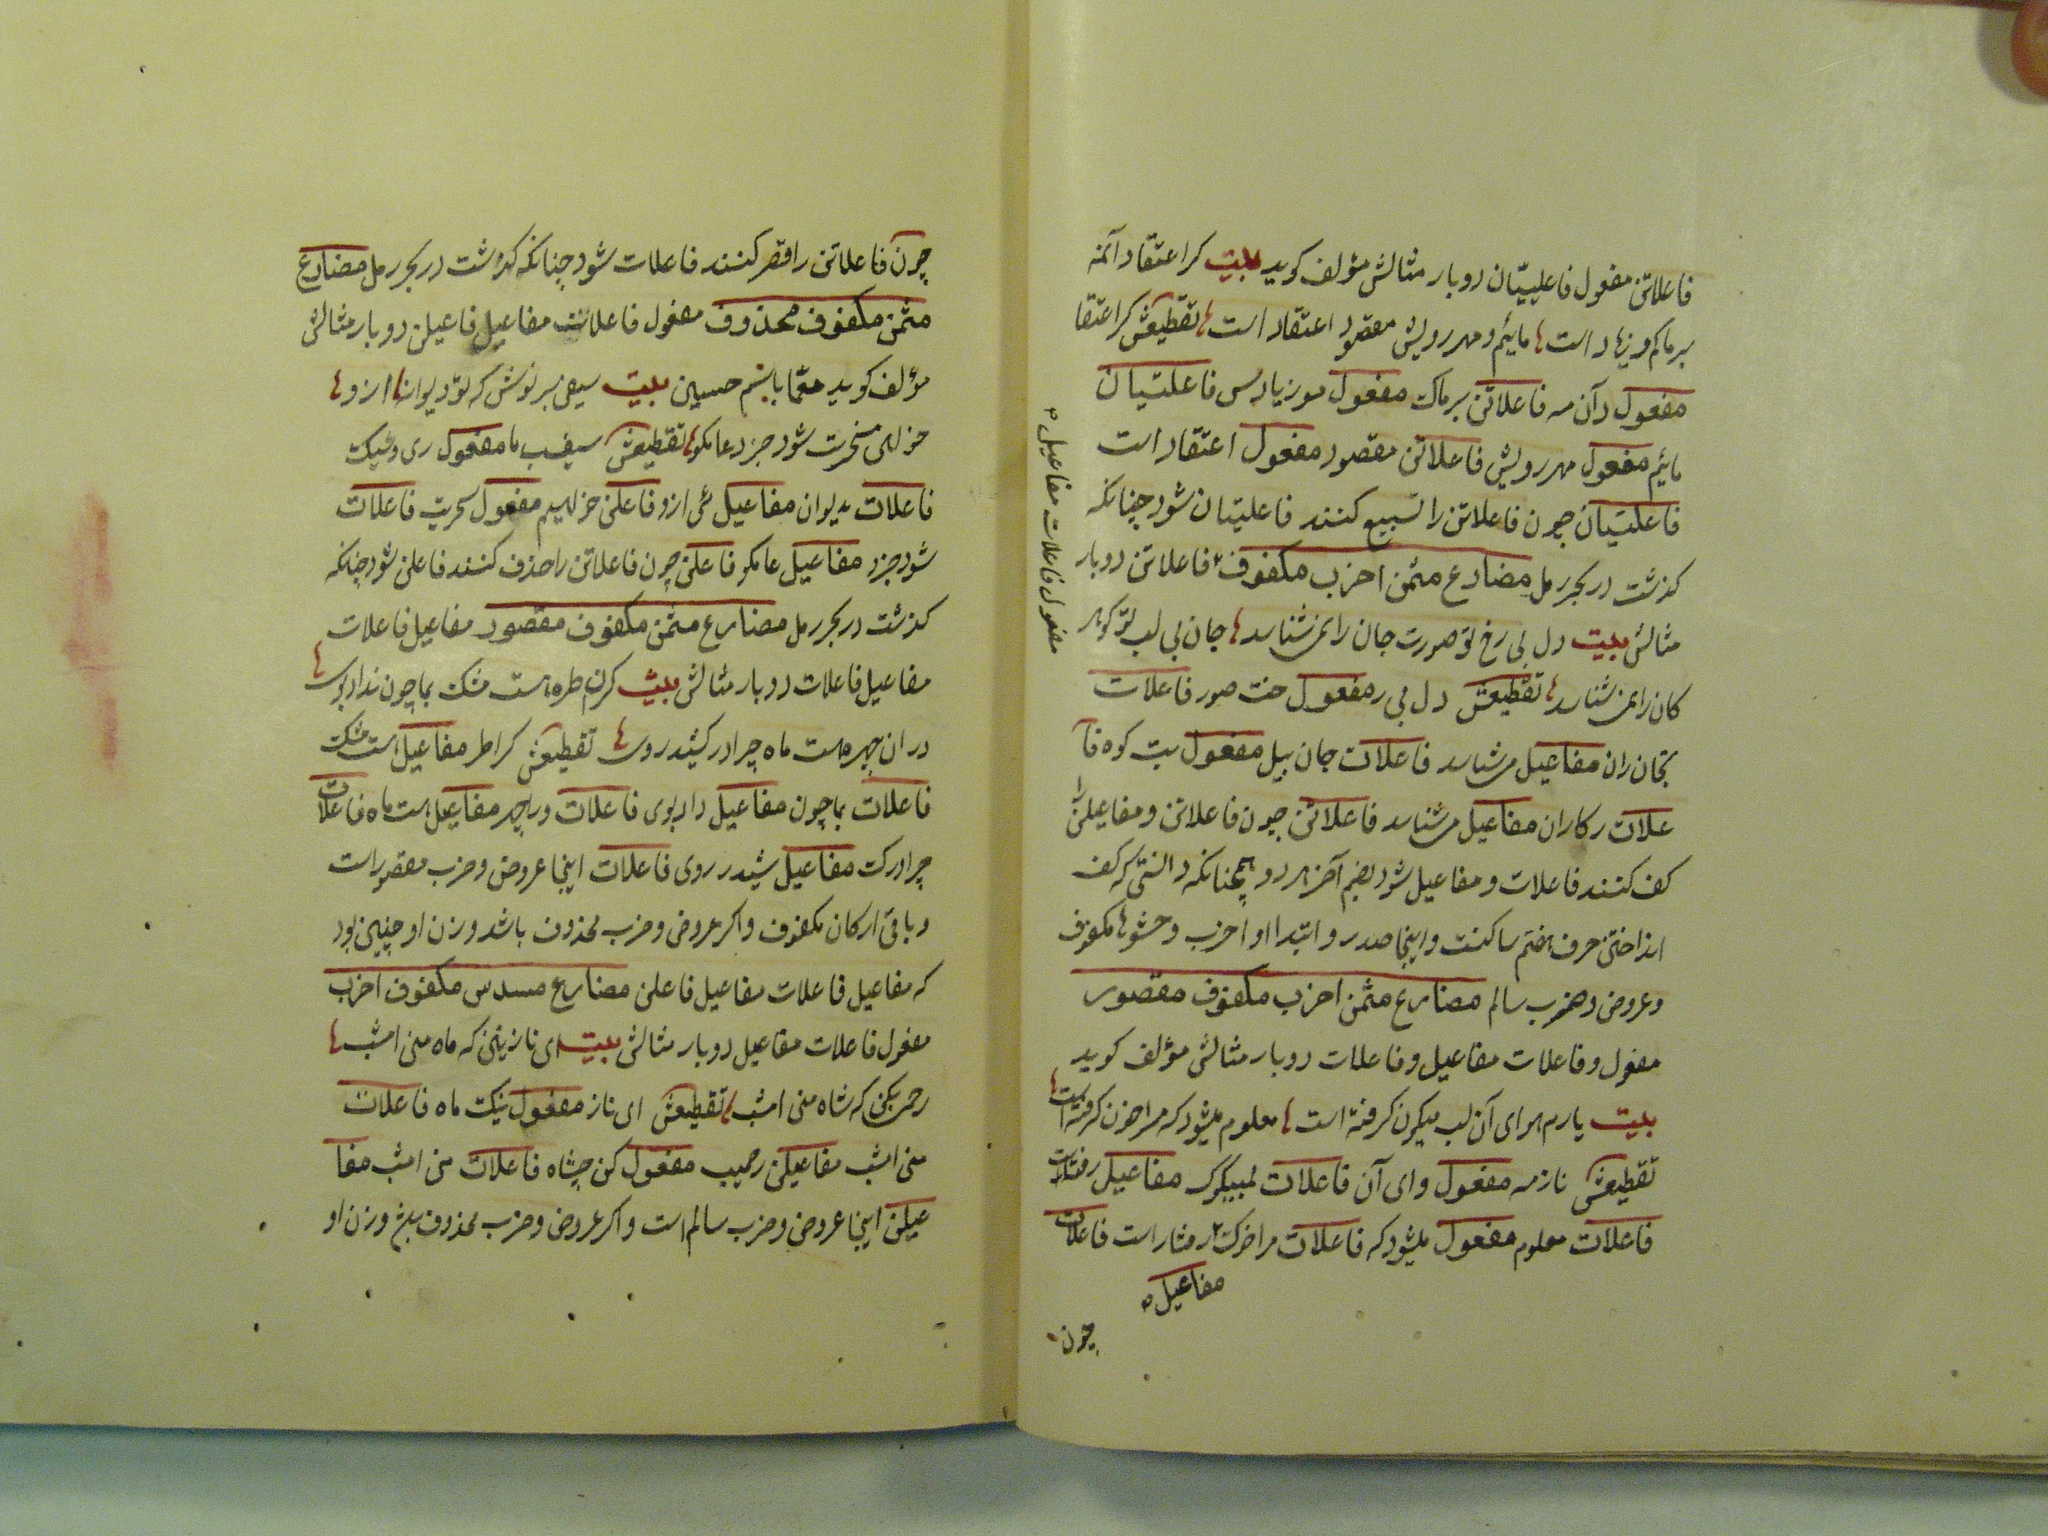 فاعلاتن مفعول فاعلیّان دوبار مثالش مؤلف کوید بیت کر اعتقاد آئمه
بر ماکم وزیاد است مائیم و مهر رویش مقصود اعتقاد است تقطیعش کر اعتقا
مفعول دآن مه فاعلاتن بر ماک مفعول موزیادس فاعلتیان
مائیم مفعول مهر رویش فاعلاتن مقصود مفعول اعتقاد است
فاعلتیان چون فاعلاتن را تسبیع کنند فاعلیتان شود چنانکه
کذشت در بحر رمل مضارع مثمن اخرب مکفوف فاعلاتن دوبار
مثالش بیت دل بی رخ تو صورت جان را نمی شناسد جان بی لب تو کوهر
کان را نمی شناسد تقطیعش دل بی ر مفعول خت صور فاعلات
تجان ران مفاعیل مرشناسد فاعلات جان بیل مفعول بت کوه فا
علات رکاران مفاعیل مرشناسد فاعلاتن چون فاعلاتن و مفاعیلن را
کف کنند فاعلات و مفاعیل شود بضم آخر هر دو همچنانکه دانستی که کف
انداختن حرف هفتم ساکنت و اینجا صدر و ابتدا او اخرب و حشوها مکفوف
و عروض و ضرب سالم مضارع مثمن اخرب مکفوف مقصور
مفعول و فاعلات مفاعیل و فاعلات دوبار مثالش مؤلف کوید
بیت یارم هوای آن لب میکون کرفته است معلوم میشود که مرا خون کرفته است
تقطیعش نازمه مفعول وای آن فاعلات لبمیکوک مفاعیل رفتاست
فاعلات معلوم مفعول میشود که فاعلات مراخوک رفتاراست فاعلات
مفاعیل
چون
مفعول فاعلات مفاعیل
چون فاعلاتن را قصر کنند فاعلات شود چنانکه کذشت در بحر رمل مضارع
مثمن مکفوف محذوف مفعول فاعلات مفاعیل فاعیلن دوبار مثالش
مؤلف کوید معمّا باسم حسین بیت سیفی بر نوش که تو دیوانه ارزو
حز للی مسخرت شود جز دعا مکو تقطیعش سیفب ما مفعول ری وشیک
فاعلات بدیوان مفاعیل ئی ارزو فاعلن حز للیم مفعول سحرت فاعلات
شود جزد مفاعیل عا مکو فاعلن چون فاعلاتن را حذف کنند فاعلن شود چنانکه
کذشت در بحر رمل مضارع مثمن مکفوف مقصور مفاعیل فاعلات
مفاعیل فاعلات دوبار مثالش بیت کران طره هست مشک بما چون ندادبوی
در ان چهره هست ماه چرا درکشید روی تقطیعش کراطر مفاعیل هست مشک
فاعلات بما چون مفاعیل دادبوی فاعلات ورا چهر مفاعیل هست ماه فاعلات
چرادرکت مفاعیل شیدر روی فاعلات اینجا عروض و ضرب مقصور است
و باقی ارکان مکفوف و اکر عروض و ضرب محذوف باشد وزن او چنین بود
که مفاعیل فاعلات مفاعیل فاعلن مضارع مسدس مکفوف اخرب
مفعول فاعلات مفاعیل دوبار مثالش بیت ای نازنینی که ماه منی امشب
رحمی بکن که شاه منی امشب تقطیعش ای ناز مفعول نیکت ماه فاعلات
منی امشب مفاعیلن رحمیب مفعول کن چشاه فاعلات منی امشب مفا
عیلن اینجا عروض و ضرب سالم است و اکر عروض و ضرب محذوف باشد وزن او